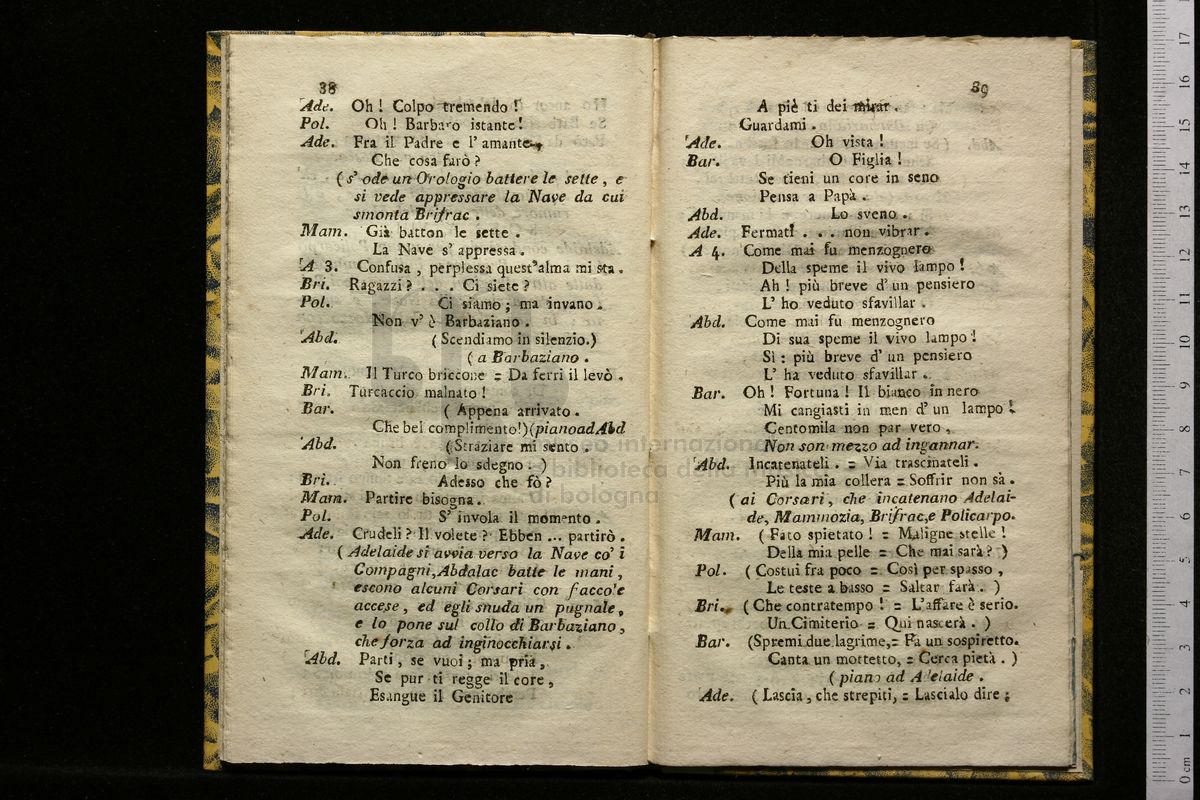 38
Ade. Oh! Colpo tremendo!
Pol. Oh! Barbaro istante!
Ade. Fra il Padre e l'amante,
Che cosa farò?
(s'ode un Orologio battere le sette, e
si vede appressare la Nave da cui
smonta Brifrac.
Mam. Già batton le sette.
La Nave s'appressa.
A 3. Confusa, perplessa quest'alma mi sta.
Bri. Ragazzi? . . . Ci siete?
Pol. Ci siamo; ma invano.
Non v'è Barbaziano.
Abd. (Scendiamo in silenzio.)
(a Barbaziano.
Mam. Il Turco briccone = Da ferri il levò.
Bri. Turcaccio malnato!
Bar. (Appena arrivato.
Che bel complimento!)(piano ad Abd
Abd. (Straziare mi sento.
Non freno lo sdegno.)
Bri. Adesso che fò?
Mam. Partire bisogna.
Pol. S'invola il momento.
Ade. Crudeli? Il volete? Ebben ... partirò.
(Adelaide si avvia verso la Nave co'i
Compagni, Abdalac batte le mani,
escono alcuni Corsari con facco'e
accese, ed egli snuda un pugnale,
e lo pone sul collo di Barbaziano,
che forza ad inginocchiarsi.
Abd. Parti, se vuoi; ma pria,
Se pur ti regge il core,
Esangue il Genitore
39
A piè ti dei mirar.
Guardami.
Ade. Oh vista!
Bar. O Figlia!
Se tieni un core in seno
Pensa a Papà.
Abd. Lo sveno.
Ade. Fermati . . . non vibrar.
A 4. Come mai fu menzognero
Della speme il vivo lampo!
Ah! più breve d'un pensiero
L'ho veduto sfavillar.
Abd. Come mai fu menzognero
Di sua speme il vivo lampo!
Sì: più breve d'un pensiero
L'ha veduto sfavillar.
Bar. Oh! Fortuna! Il bianco in nero
Mi cangiasti in men d'un lampo!
Centomila non par vero,
Non son mezzo ad ingannar.
Abd. Incatenateli. = Via trascinateli.
Più la mia collera = Soffrir non sà.
(ai Corsari, che incatenano Adelai-
de, Mammozia, Brifrac, e Policarpo.
Mam. (Fato spietato! = Maligne stelle!
Della mia pelle = Che mai sarà?)
Pol. (Costui fra poco = Così per spasso,
Le teste a basso = Saltar farà.)
Bri. (Che contratempo! = L'affare è serio.
Un Cimiterio = Qui nascerà.)
Bar. (Spremi due lagrime, = Fa un sospiretto.
Canta un mottetto, = Cerca pietà.)
(piano ad Adelaide.
Ade. (Lascia, che strepiti, = Lascialo dire;
museo internazionale
e biblioteca della musica
di bologna
0 cm 1 2 3 4 5 6 7 8 9 10 11 12 13 14 15 16 17